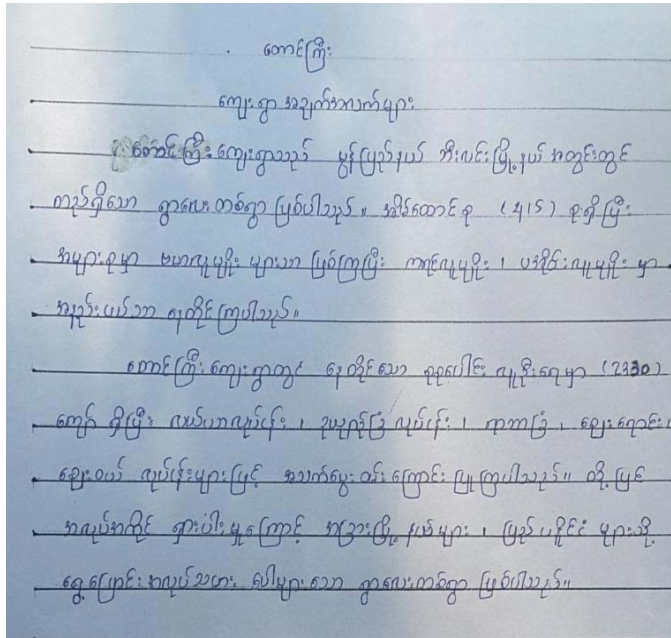 တောင်ကြီး
ကျေးရွာ အချက်အလက်များ
တောင်ကြီးကျေးရွာသည် မွန်ပြည်နယ် ဘီးလင်းမြို့နယ် အတွင်းတွင်
တည်ရှိသော ရွာလေးတစ်ရွာ ဖြစ်ပါသည်။ အိမ်ထောင်စု (415) စုရှိပြီး
အများစုမှာ ဗမာလူမျိုး များသာ ဖြစ်ကြပြီး ကရင်လူမျိုး ၊ ပအိုဝ်းလူမျိုး မှာ
အနည်းငယ်သာ နေထိုင်ကြပါသည်။
တောင်ကြီးကျေးရွာတွင် နေထိုင်သော စုစုပေါင်း လူဦးရေမှာ (2330)
ကျော် ရှိပြီး လယ်ယာလုပ်ငန်း ၊ ဥယျာဉ်ခြံ လုပ်ငန်း ၊ ရာဘာခြံ ၊ ဈေးရောင်း
ဈေးဝယ် လုပ်ငန်းများဖြင့် အသက်မွေးဝမ်းကြောင်း ပြုကြပါသည်။ ထို့ပြင်
အလုပ်အကိုင် ရှားပါးမှုကြောင့် အခြားမြို့နယ်များ ၊ ပြည်ပနိုင်ငံ များသို့
ရွှေ့ပြောင်းအလုပ်သမား ပေါများသော ရွာလေးတစ်ရွာ ဖြစ်ပါသည်။